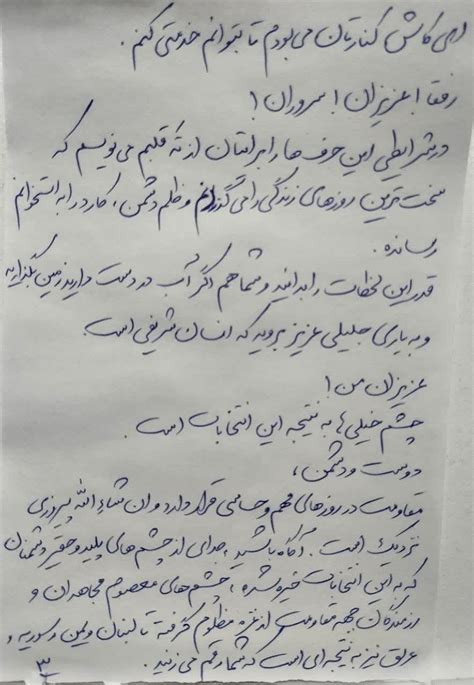 ای کاش کنارتان می‌بودم تا بتوانم خدمتی کنم.
رفقا! عزیزان! سروران!
در شرایطی این حرف‌ها را برایتان از ته قلبم می‌نویسم که
سخت‌ترین روزهای زندگی را می‌گذرانم و ظلم دشمن، کارد را به استخوانم
رسانده.
قدر این لحظات را بدانید و شما هم اگر آب در دست دارید زمین بگذارید
و به یاری جلیلی عزیز بروید که انسان شریفی است.
عزیزان من!
چشم خیلی‌ها به نتیجه این انتخابات است.
دوست و دشمن،
مقاومت در روزهای مهم و حساسی قرار دارد و ان شاء الله پیروزی
نزدیک است. آگاه باشید، جدای از چشم‌های پلید و حقیر دشمنان
که به این انتخابات خیره شده، چشم‌های معصوم مجاهدان و
رزمندگان جبهه مقاومت از غزه مظلوم گرفته تا لبنان و یمن و سوریه و
عراق نیز به نتیجه‌ای است که شما رقم می‌زنید.
۳